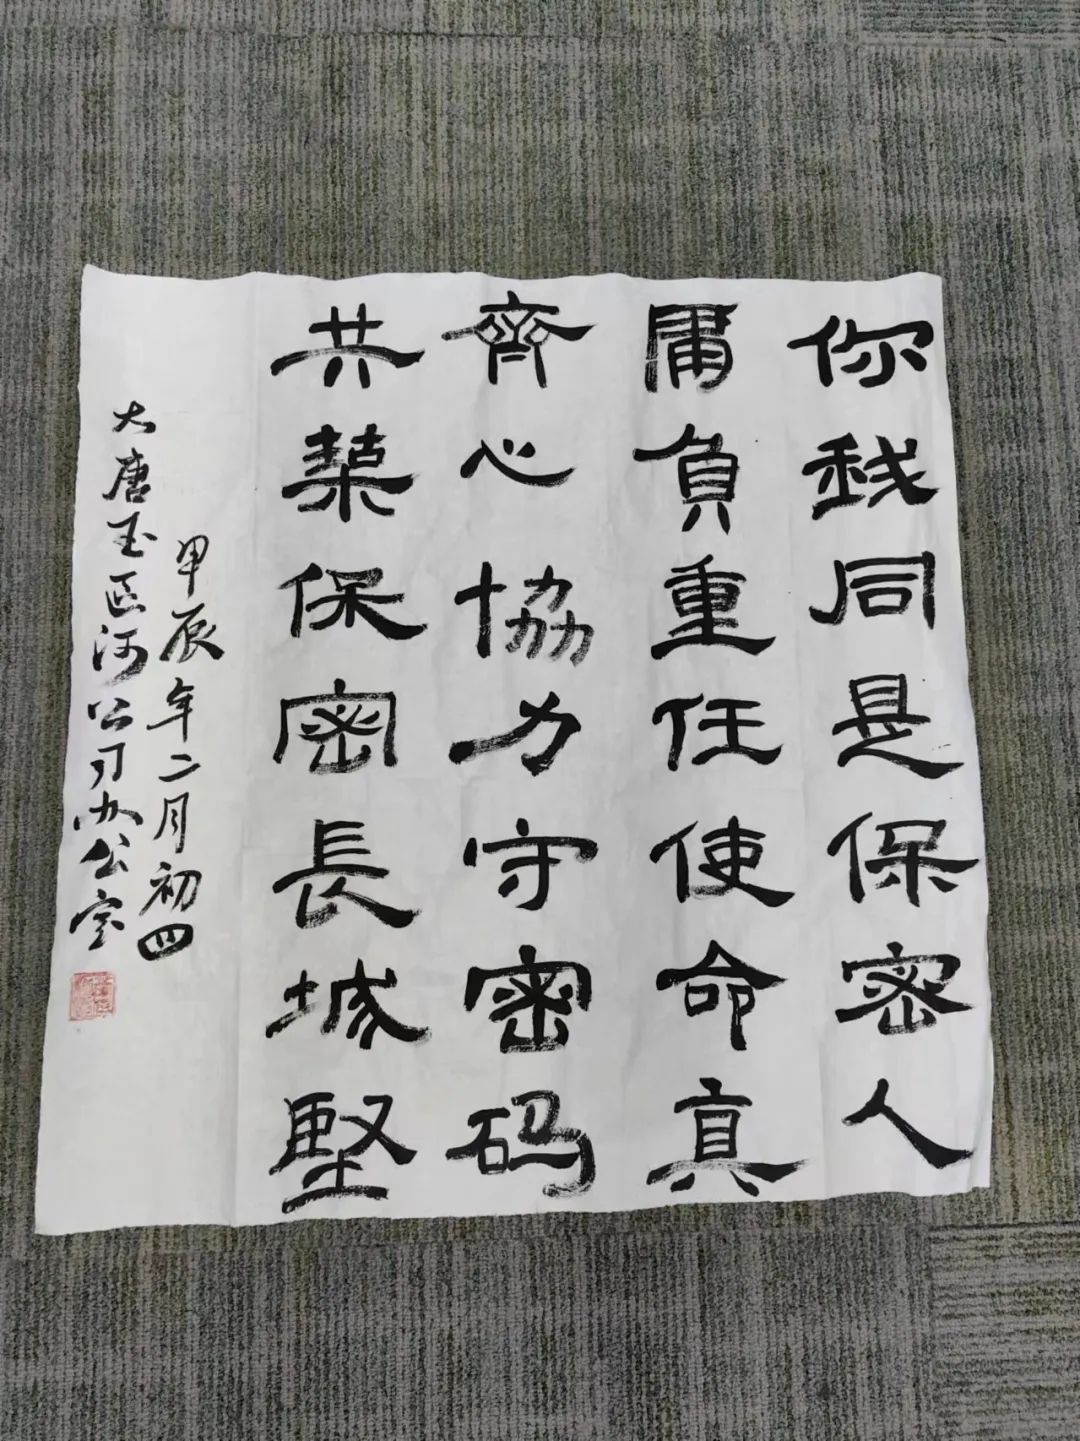 你我同是保密人
肩負重任使命真
齊心協力守密码
共築保密長城堅
甲辰年二月初四
大唐河公司办公室